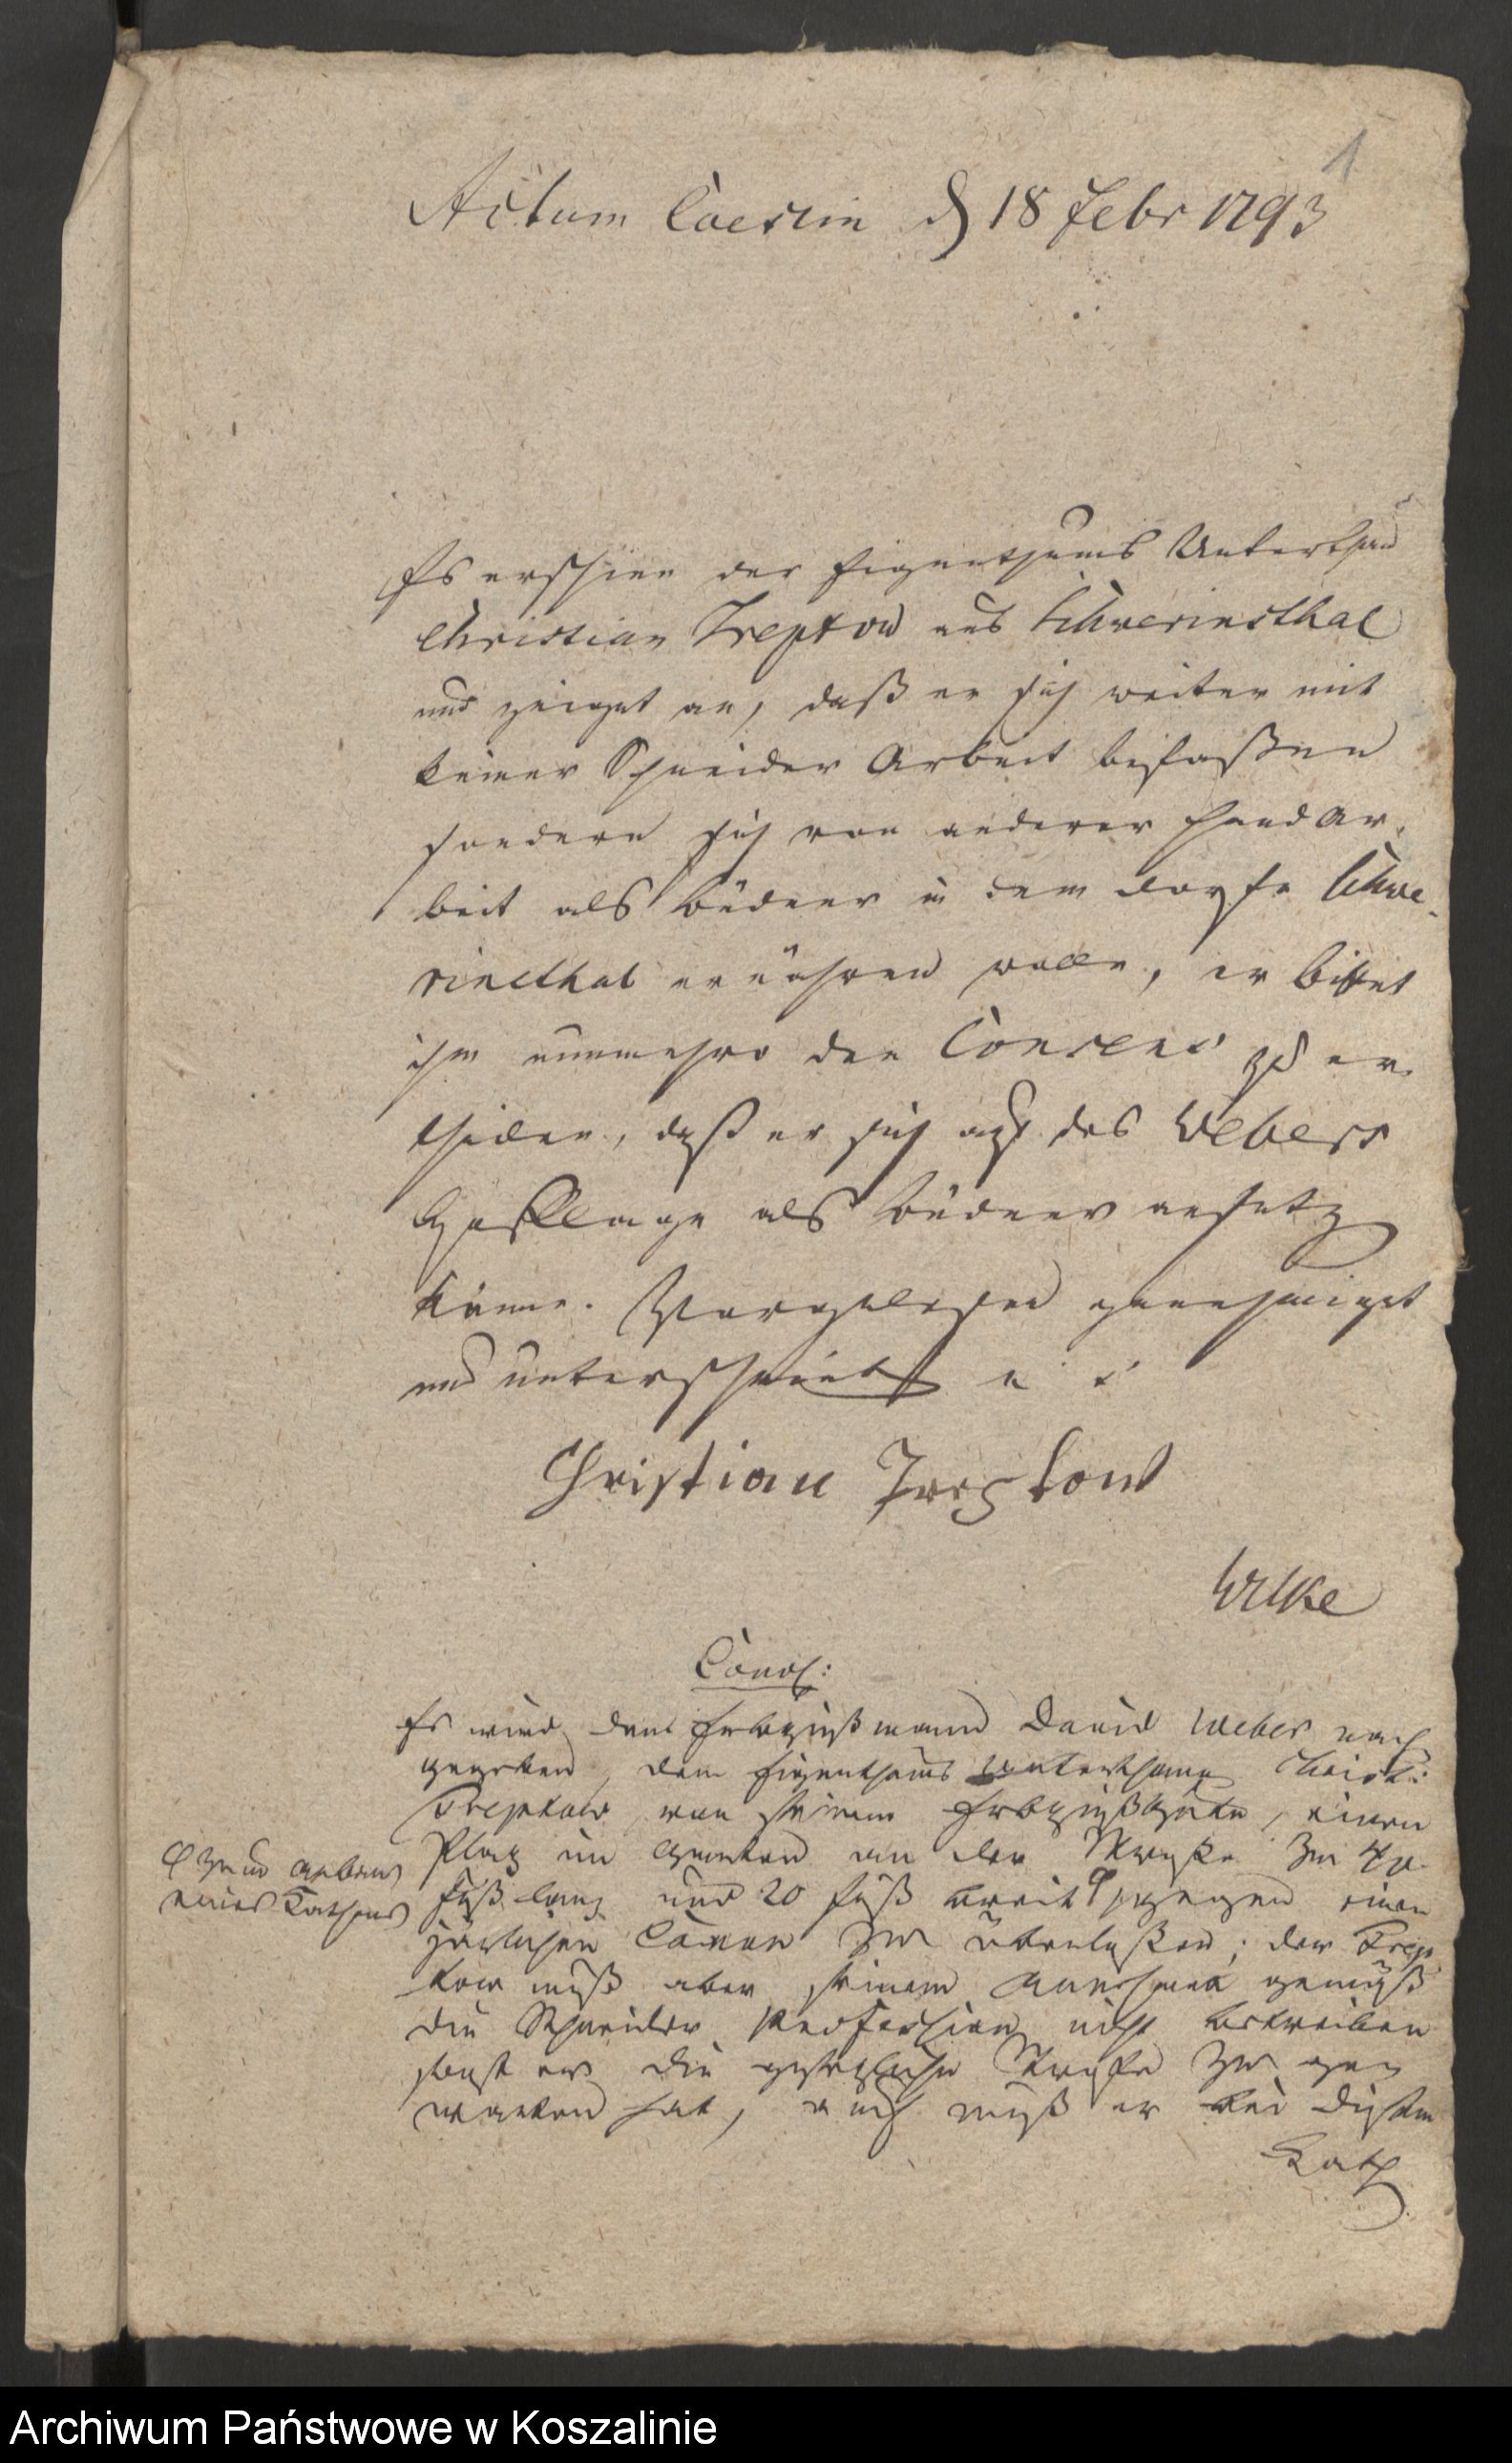 1
Actum Coeslin d 18 Febr 1793
Es erschien der Eigenthums Unterthan
Christian Treptow aus Schwerinsthal
und zeiget an, daß er sich weiter mit
keiner Schneider Arbeit befaßen
sondern sich von anderer Hand Ar-
beit als Büdner in dem Dorfe Schwe-
rinsthal ernähren wolle, er bittet
ihm nunmehro den Consens zu er-
theilen, daß er sich auf des Webers
Hofflage als Büdner ansetz
könne. Vorgelesen genehmiget
und unterschrieben
Christian Treptow
Concl:
Es wird dem Erbzinßmann David Weber nach
gegeben, dem Eigenthums Unterthan Christ:
Treptow von seinem Erbzinßgute, einen
Platz im Garten an der Straße zu 40
Fuß lang und 20 Fuß breit gegen einen
zum Anbau
eines Kathens
järlichen Canon zu überlaßen; der Trep
tow muß aber seinem gemäß
die Schneider Profession nicht betreiben
sonst er die gesetzliche Strafe zu
warten hat, auch muß er bei diesem
Kath
Archiwum Państwowe w Koszalinie